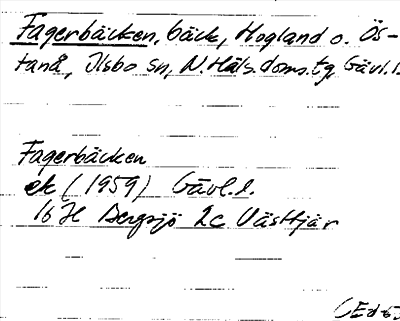 Fagerbäcken, bäck, Hogland o. Ös-
tanå, Ilsbo sn, N.Häls.doms.tg Gävl.l.
Fagerbäcken
ek (1959) Gävl.l.
16 H Bergsjö 2c Västtjär